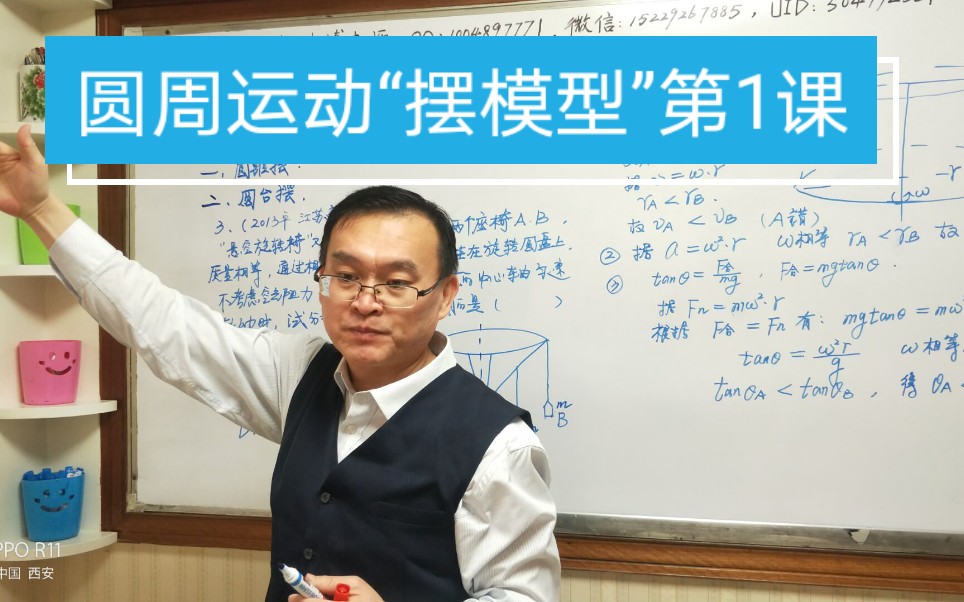 QQ:1004897771, 微信:15229267885, UID:
圆周运动“摆模型”第1课
一、圆锥摆.
二、圆台摆.
3、(2013年 江苏 两个座椅A.B,
“悬空旋转椅” 在旋转圆盘上
质量相等,通过相 的中心轴匀速
不考虑空气阻力 是( )
m
B
据 v=ω·r
rA < rB.
故 vA < vB (A错)
② 据 a=ω²·r ω相等 rA < rB 故
③ tanθ=F合/mg . F合=mgtanθ.
据 Fn=mω²·r
根据 F合=Fn 有: mgtanθ=mω²
tanθ=ω²r/g ω相等,
tanθA < tanθB , 得 θA <
r
ω
PPO R11
中国 西安